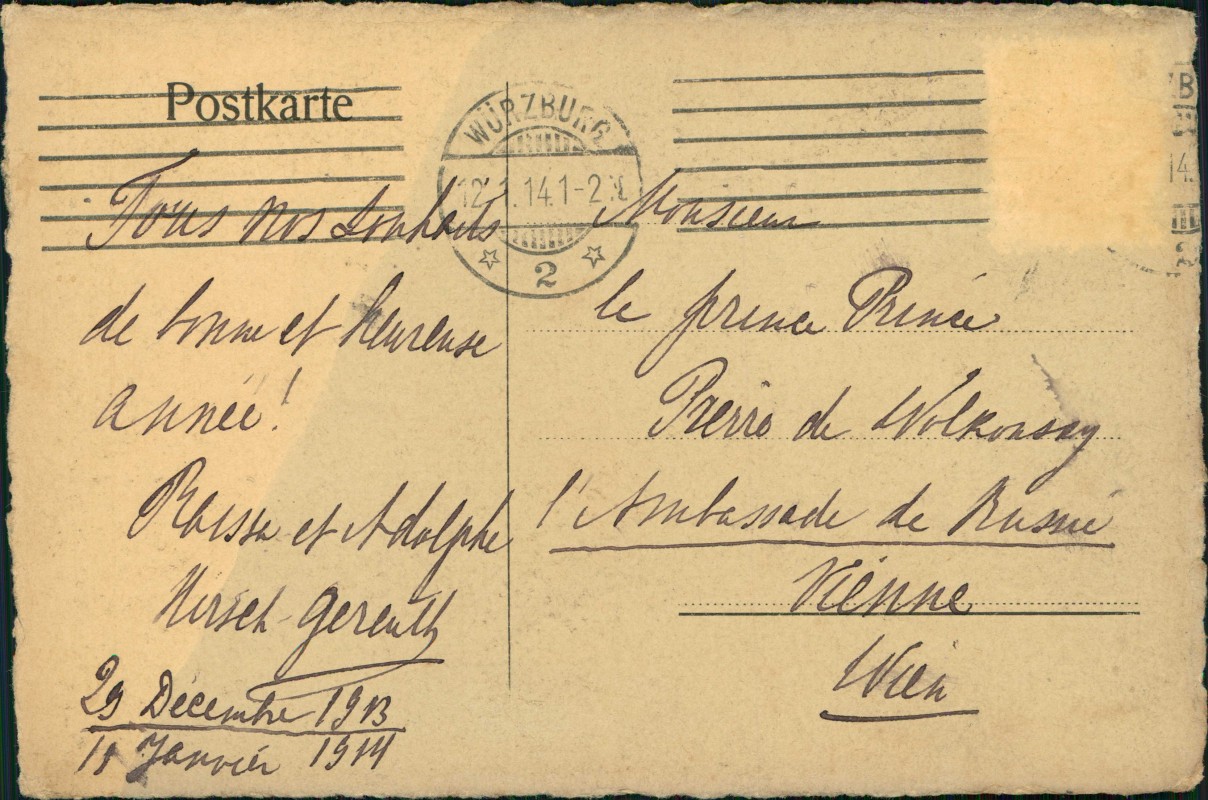 Postkarte
WÜRZBURG
12.1.14.1-2
2
Tous nos souhaits
de bonne et heureuse
année!
Raissa et Adolphe
Hirsch-Gereuth
29 Décembre 1913
Janvier 1914
Monsieur
le prince Prince
Pierre de Wolkonsky
l'Ambassade de Russie
Vienne
Wien
B
14.
2